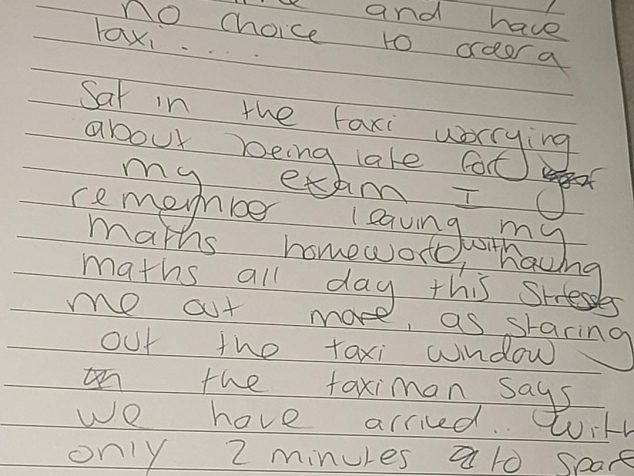 and have
no choice to order a
taxi.....
Sat in the taxi worrying
about being late for
my exam I
remember leaving my
maths homework, with having
maths all day this Stresses
me out more, as staring
out the taxi window
the taximan says
we have arrived.. With
only 2 minutes to spare